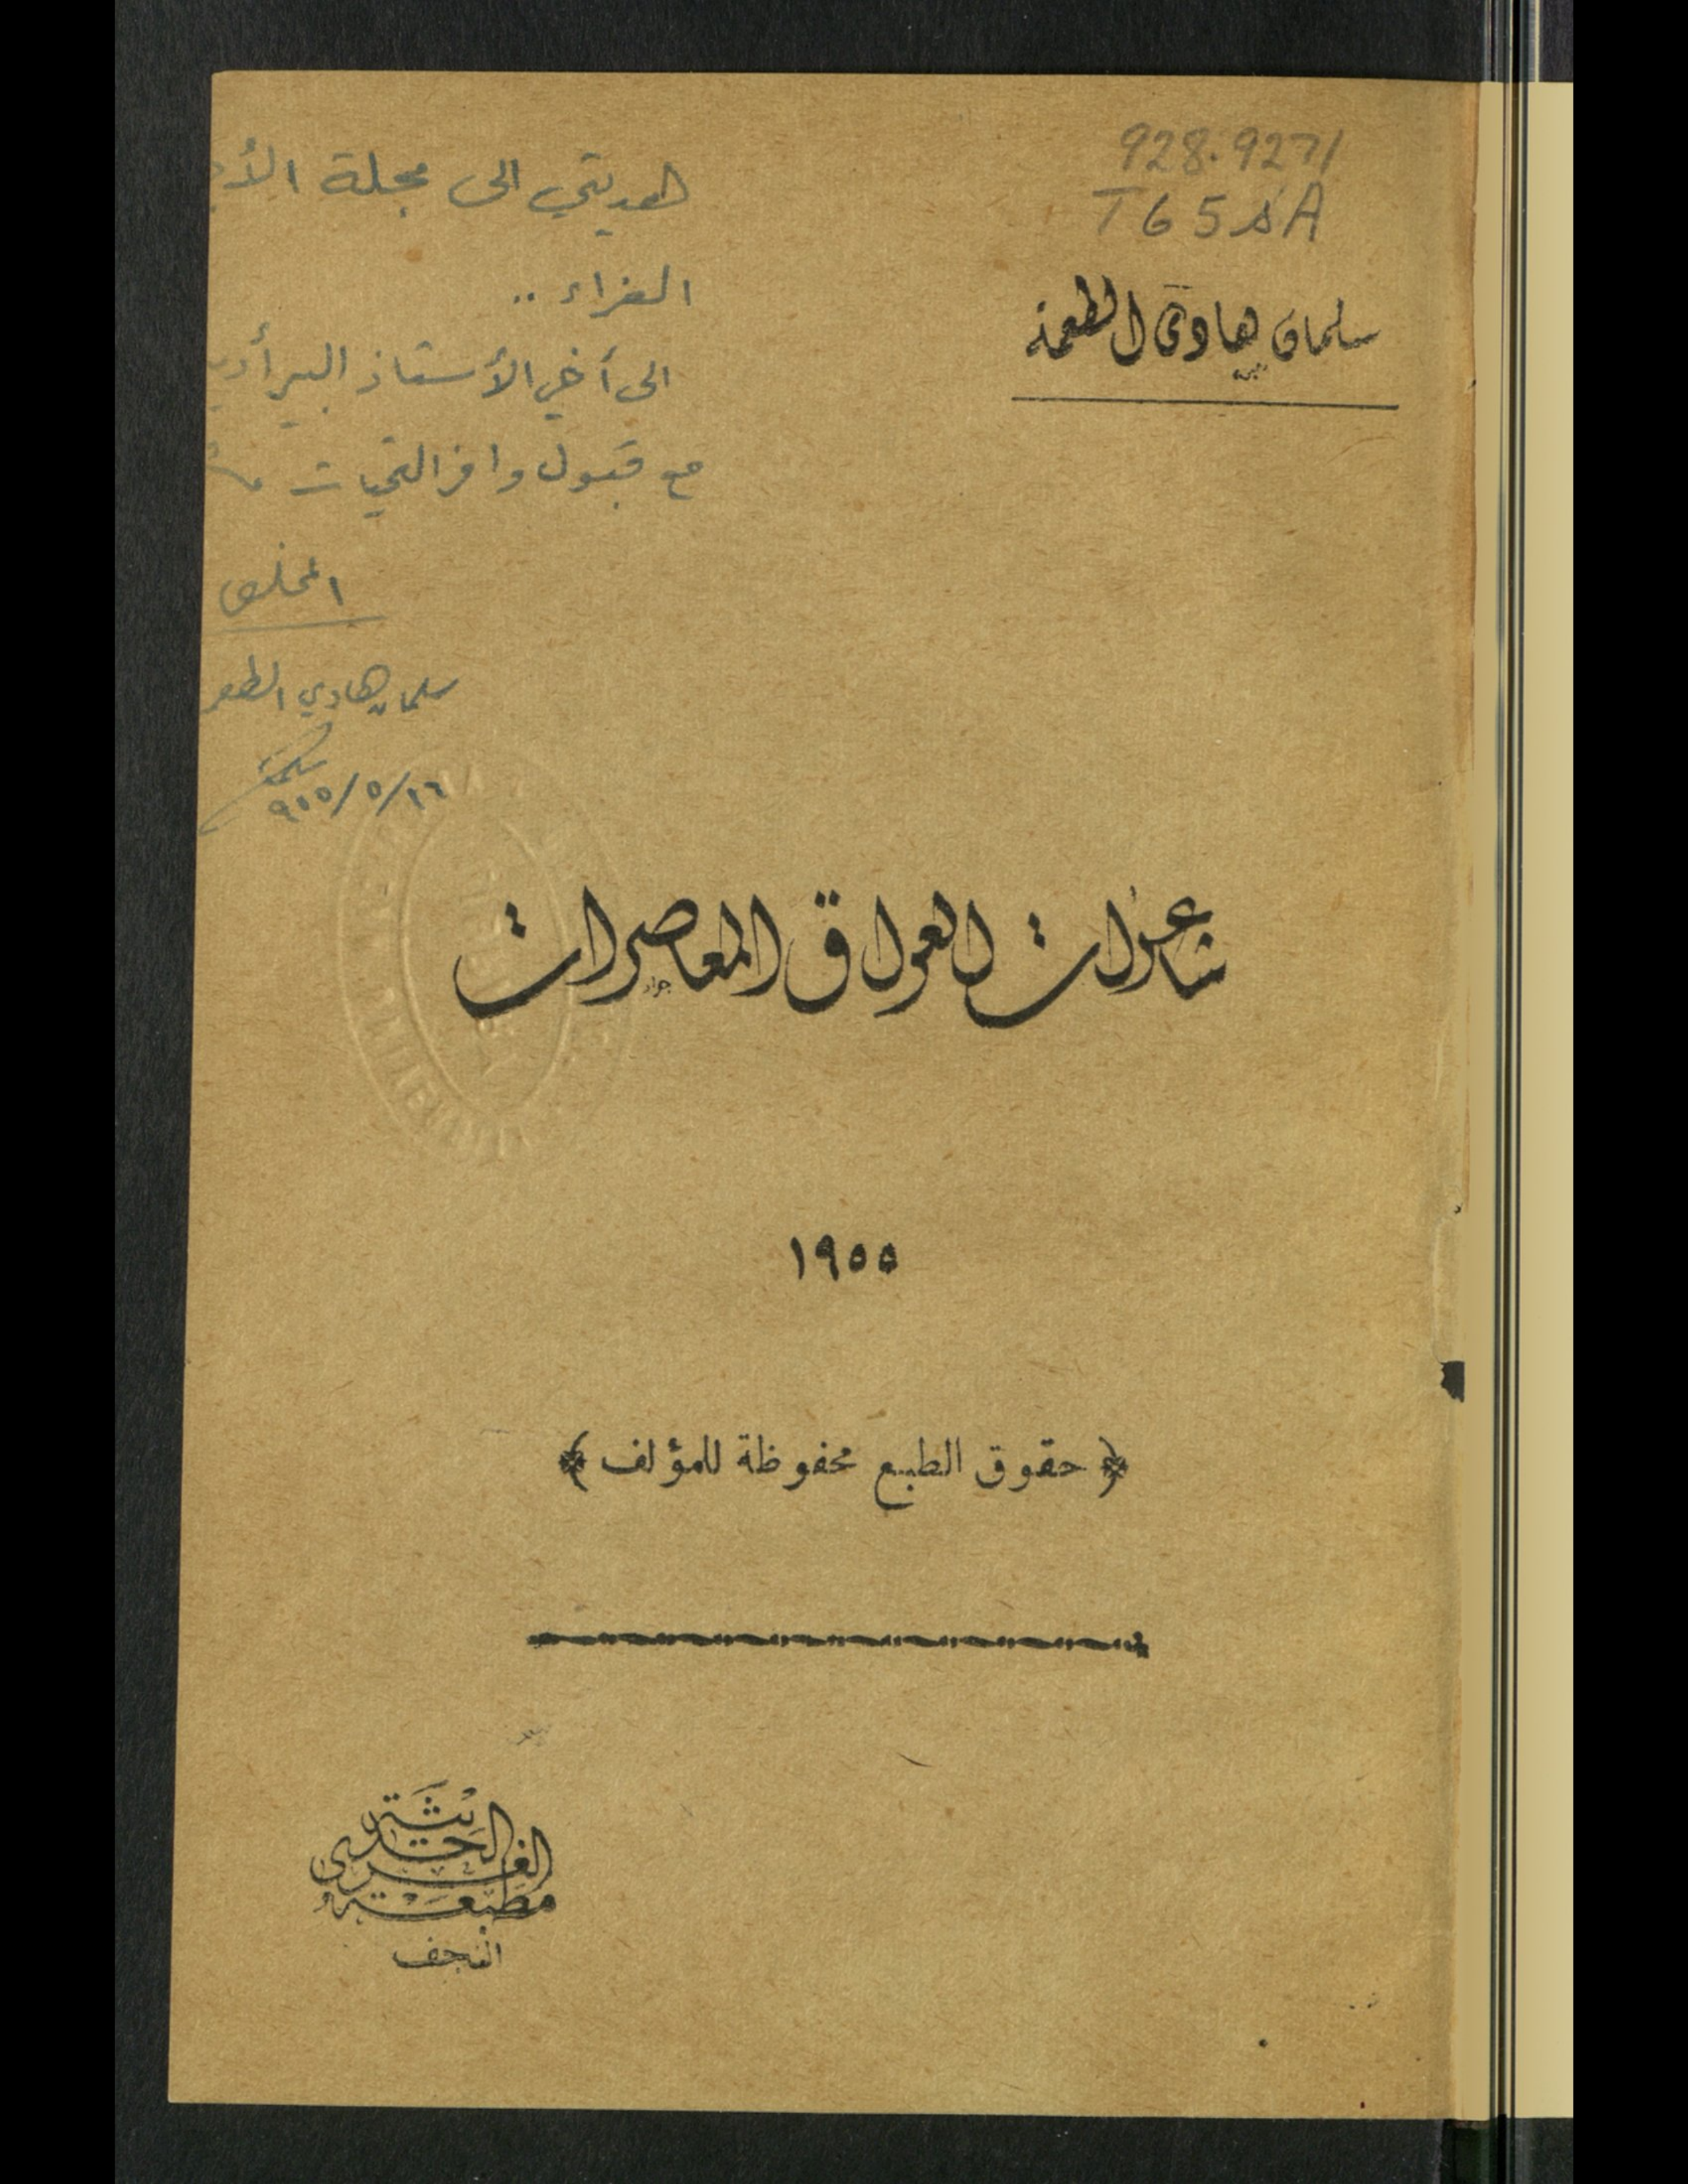 928.9271
T65sA
سلمان هادي الطعمة
هديتي الى مجلة
الغراء ..
الى أخي الأستاذ البير
مع قبول وافر التحيات
المخلص
سلمان هادي
٩٥٥/٥/١٦
شاعرات العراق المعاصرات
جواد
١٩٥٥
﴿ حقوق الطبع محفوظة للمؤلف ﴾
مطبعة الغري الحديثة
النجف